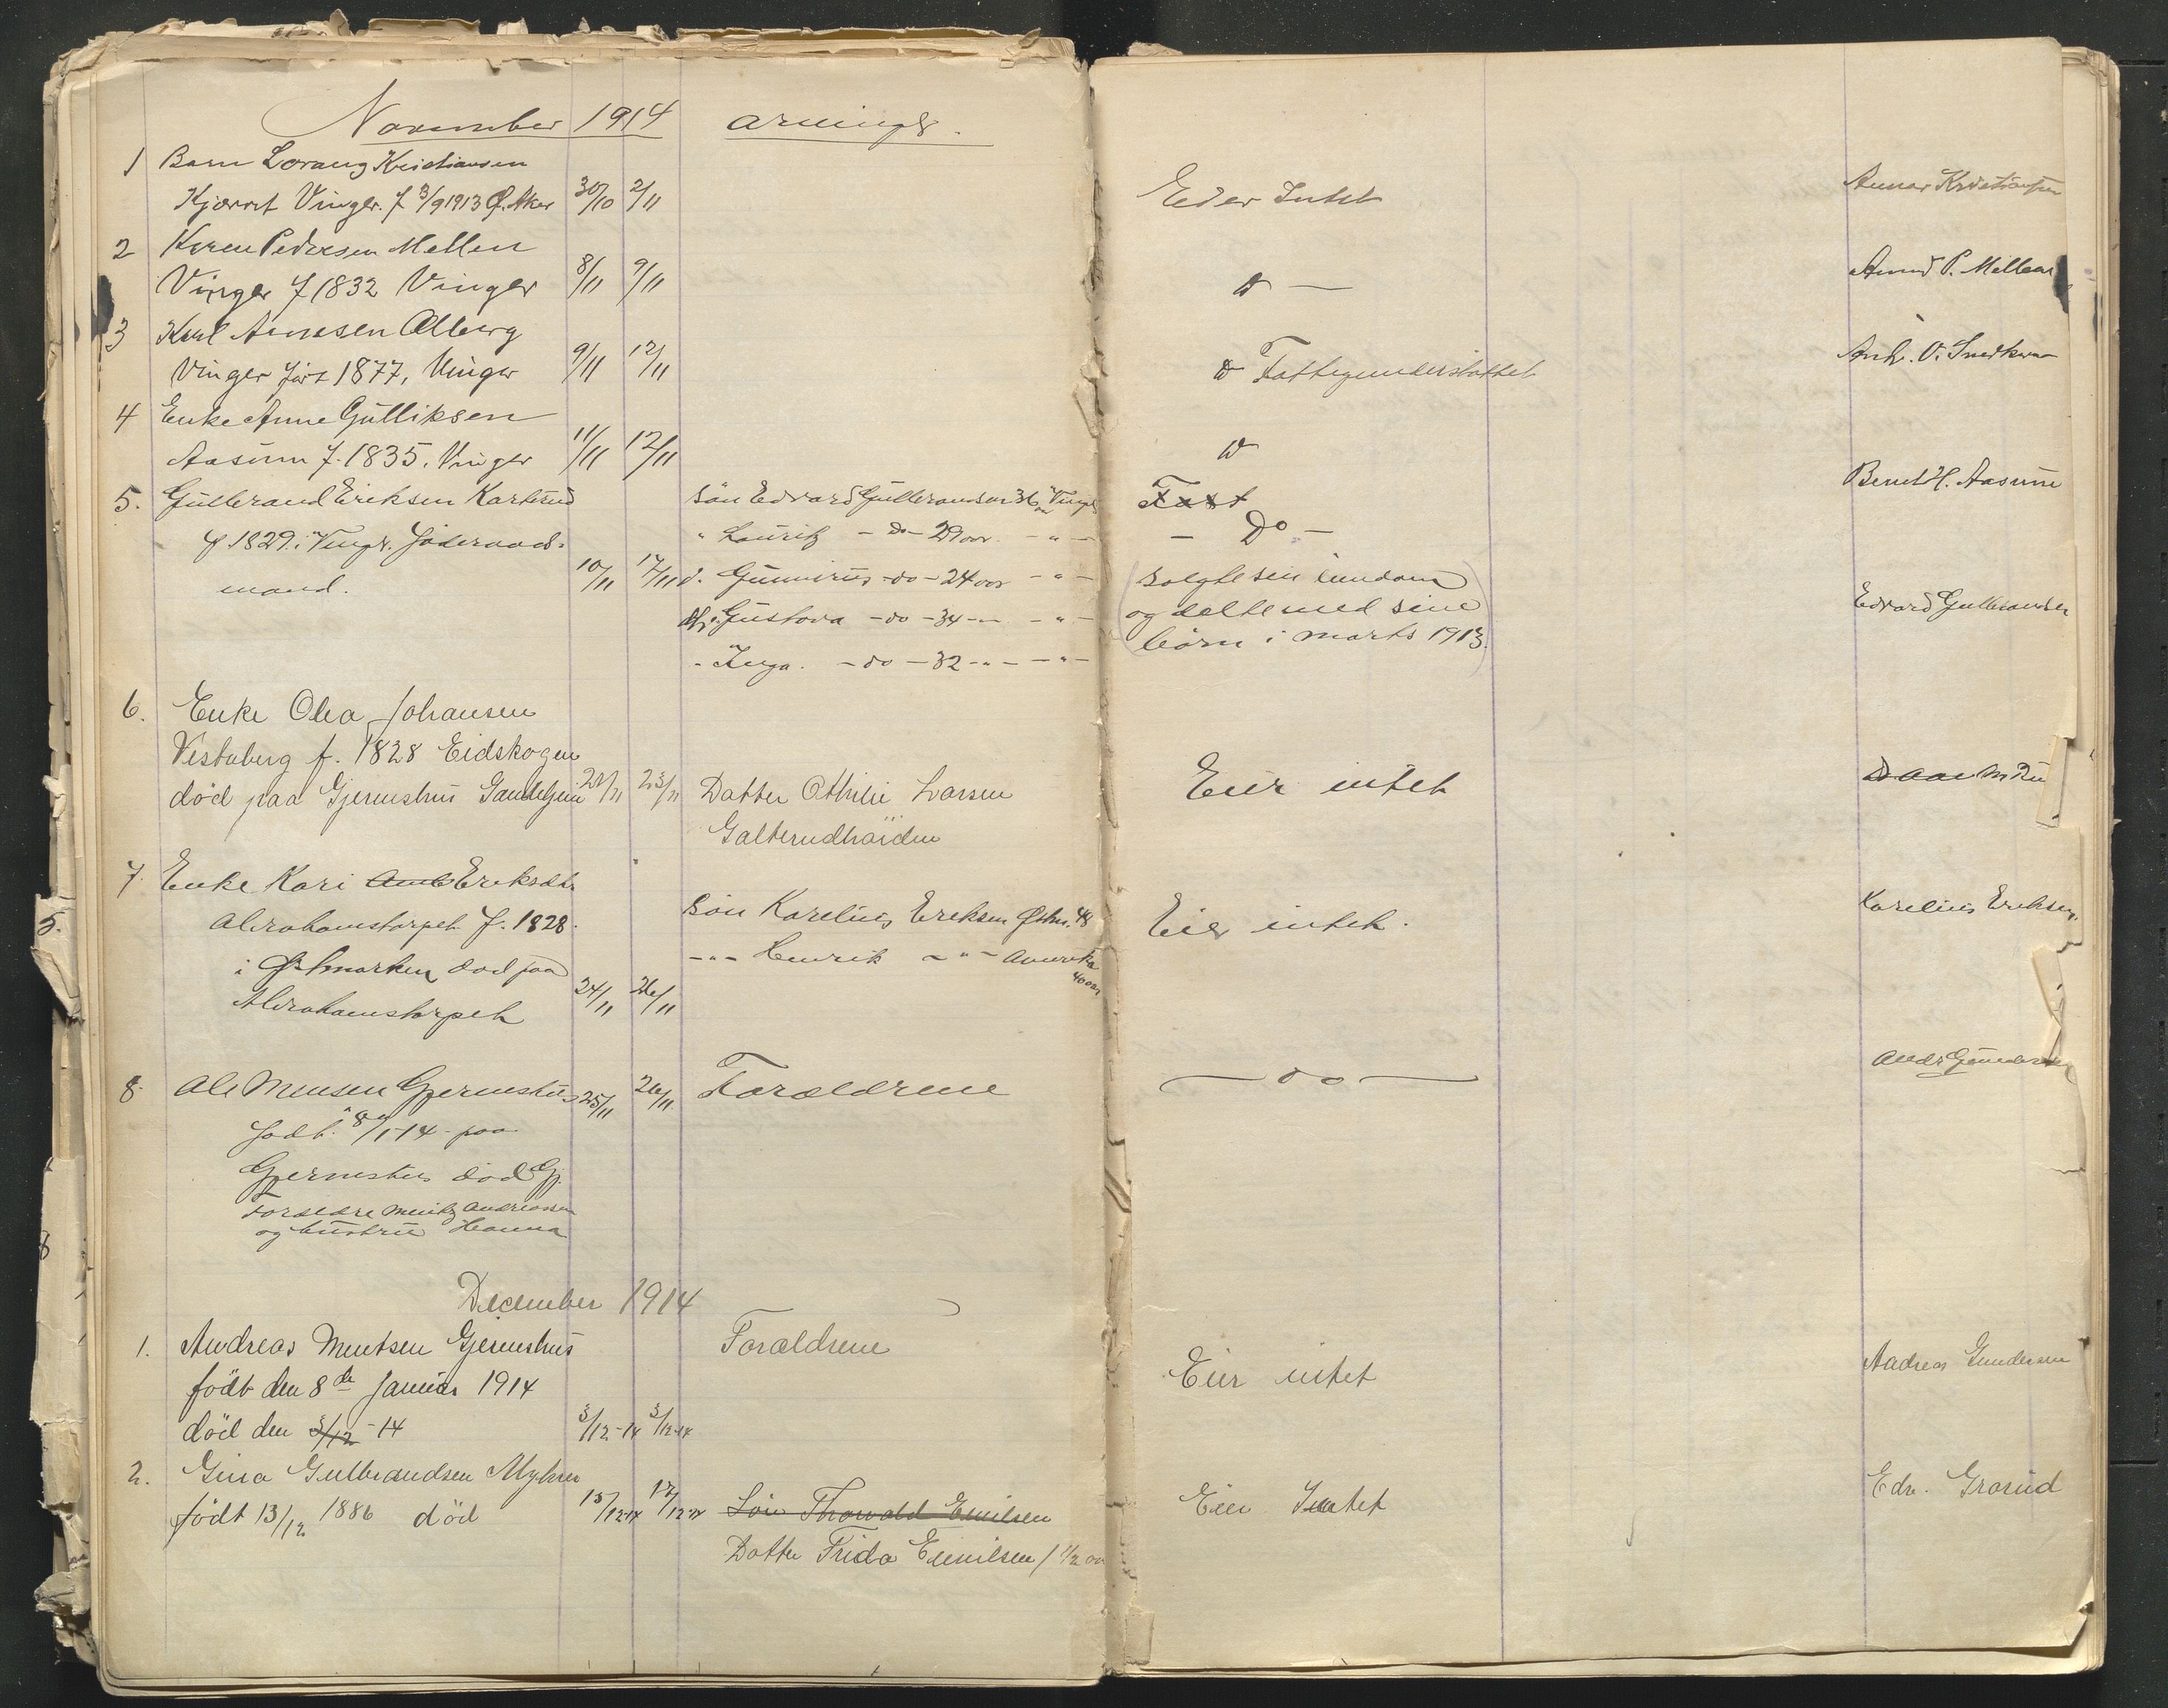 November 1914 arvinger.
1 Barn Lorang Kristiansen
Kjærret Vinger. f 3/9 1913 Ø. Aker 30/10 2/11 Eier Intet Kristiansen
2 Karen Pedersen Mellem
Vinger f 1832 Vinger 8/11 9/11 do — P. Mellem
3 Karl Arnesen
Vinger født 1877, Vinger 9/11 12/11 do Fattigunderstøttet V. Snedker
4 Enke Anne Gulliksen
Aasum f. 1835. Vinger 11/11 12/11 do Bernt H. Aasum
5. Gulbrand Eriksen søn Edvard Gulbrandsen 36 aar Vinger
f 1829 i Vinger. Føderaads- " Lauritz - do - 29 aar. - " - - Do -
mand. 10/11 17/11 d. Gunnerius - do - 24 aar - " - (solgte sin eiendom
Gustava - do - 34 - " - - " - og delte med sine Edvard Gulbrandsen
" Inga. - do - 32 - " - - " - børn i marts 1913.)
6. Enke Olea Johansen
Vestaberg f. 1828 Eidskogen
død paa Gjermshus 21/11 23/11 Datter Othilie Larsen Eier intet
Galterudhaiden
7. Enke Kari Eriksdtr.
Abrahamstorpet f. 1828. søn Karelius Eriksen Østm. 48 Eier intet. Karelius Eriksen.
i Østmarken død paa - " - Henrik - " - Amerika
Abrahamstorpet 24/11 26/11 40 aar
8. Ole Mentsen Gjermshus 25/11 26/11 Forældrene — do — Andr Gundersen
født. 8/1-14 paa
Gjermshus død Gj.
Forældre Mentz Andreassen
og hustru Hanna
December 1914
1. Andreas Mentsen Gjermshus Forældrene
født den 8de Januar 1914 Eier intet Andreas Gundersen
død den 3/12-14 3/12-14 3/12-14
2. Gina Gulbrandsen Myhren
født 13/12 1886 død 15/12-14 17/12-14 Søn Thorvald Emilsen Eier Intet Edv. Grasrud
Datter Frida Emilsen 1 1/2 aar